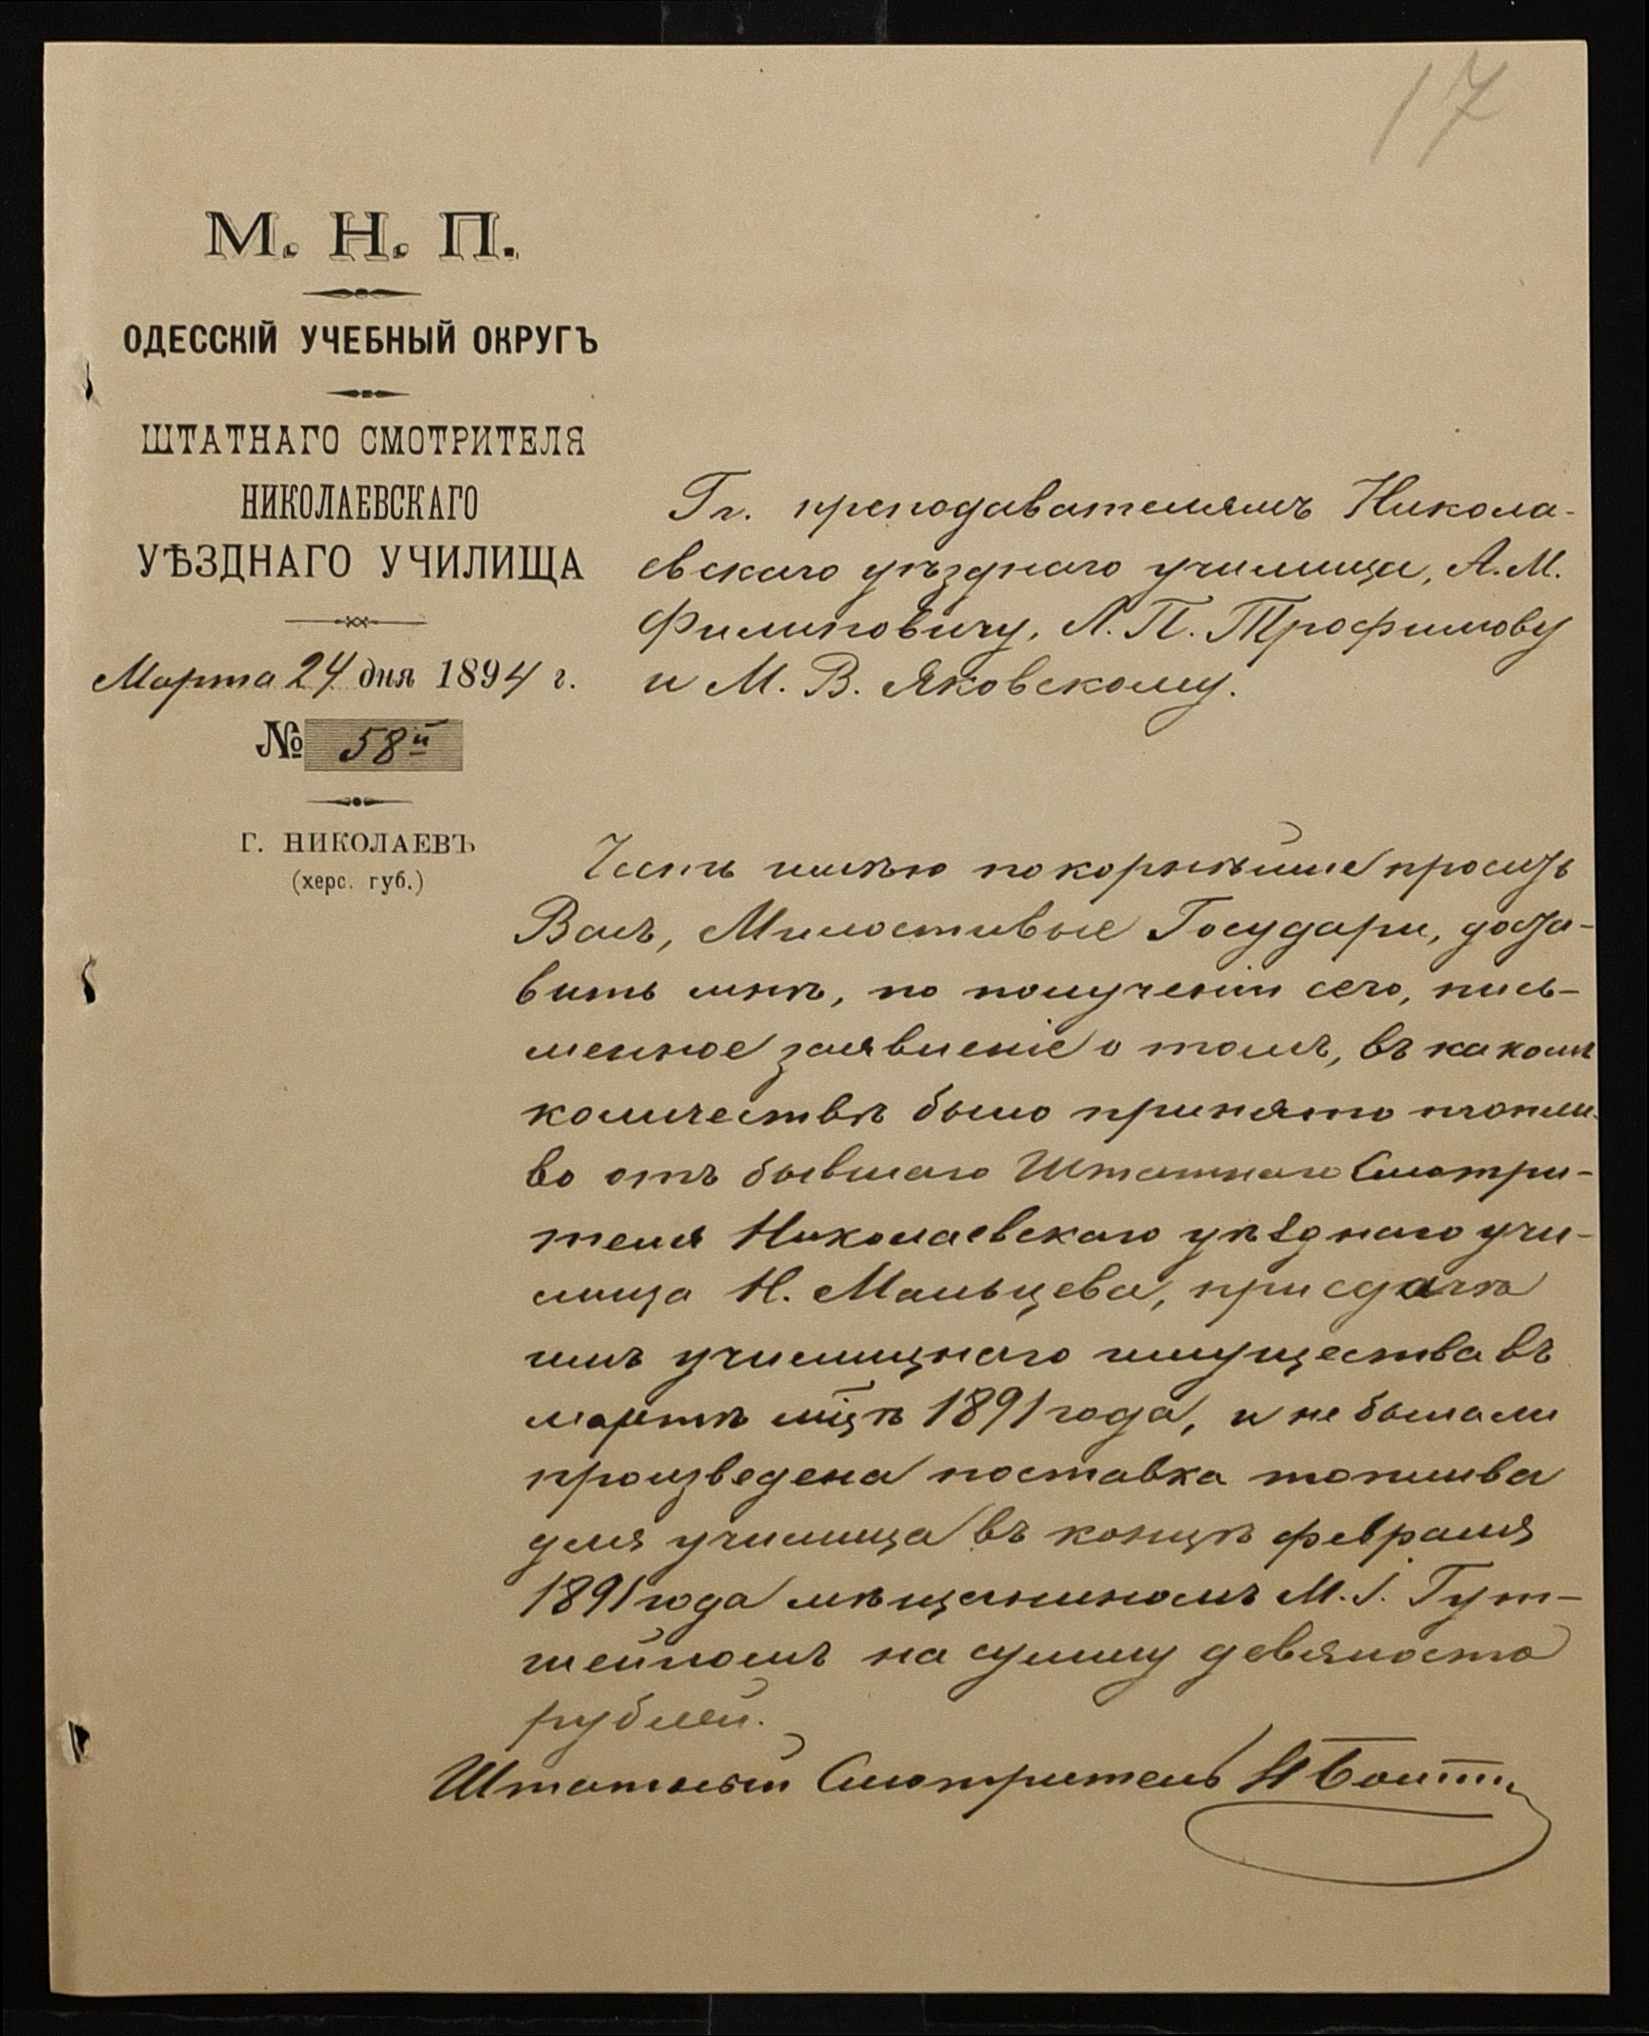 17
М. Н. П.
ОДЕССКІЙ УЧЕБНЫЙ ОКРУГЪ
ШТАТНАГО СМОТРИТЕЛЯ
НИКОЛАЕВСКАГО
УѢЗДНАГО УЧИЛИЩА
Марта 24 дня 1894 г.
№ 58й
Г. НИКОЛАЕВЪ
(херс. губ.)
Гг. преподавателямъ Никола-
евскаго уѣзднаго училища, А. М.
Филиповичу, Л. П. Трофимову
и М. В. Яковскому.
Честь имѣю покорнѣйше просить
Васъ, Милостивые Государи, доста-
вить мнѣ, по полученіи сего, пись-
менное заявленіе о томъ, въ какомъ
количествѣ было принято топли-
во отъ бывшаго Штатнаго Смотри-
теля Николаевскаго уѣзднаго учи-
лища Н. Мальцева, при сдачѣ
имъ училищнаго имущества въ
мартѣ мцѣ 1891 года, и не была ли
произведена поставка топлива
для училища въ концѣ февраля
1891 года мѣщаниномъ М. І. Гут-
тейномъ на сумму девяносто
рублей.
Штатный Смотритель Н